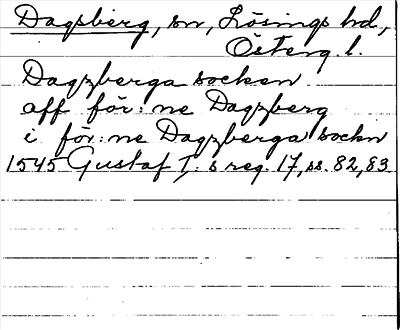 Dagsberg, sn, Lösings hd,
Österg. l.
Dagzberga socken
aff för:ne Dagzberg
i för:ne Dagzberga sockn
1545 Gustaf I:s reg. 17, ss. 82, 83.